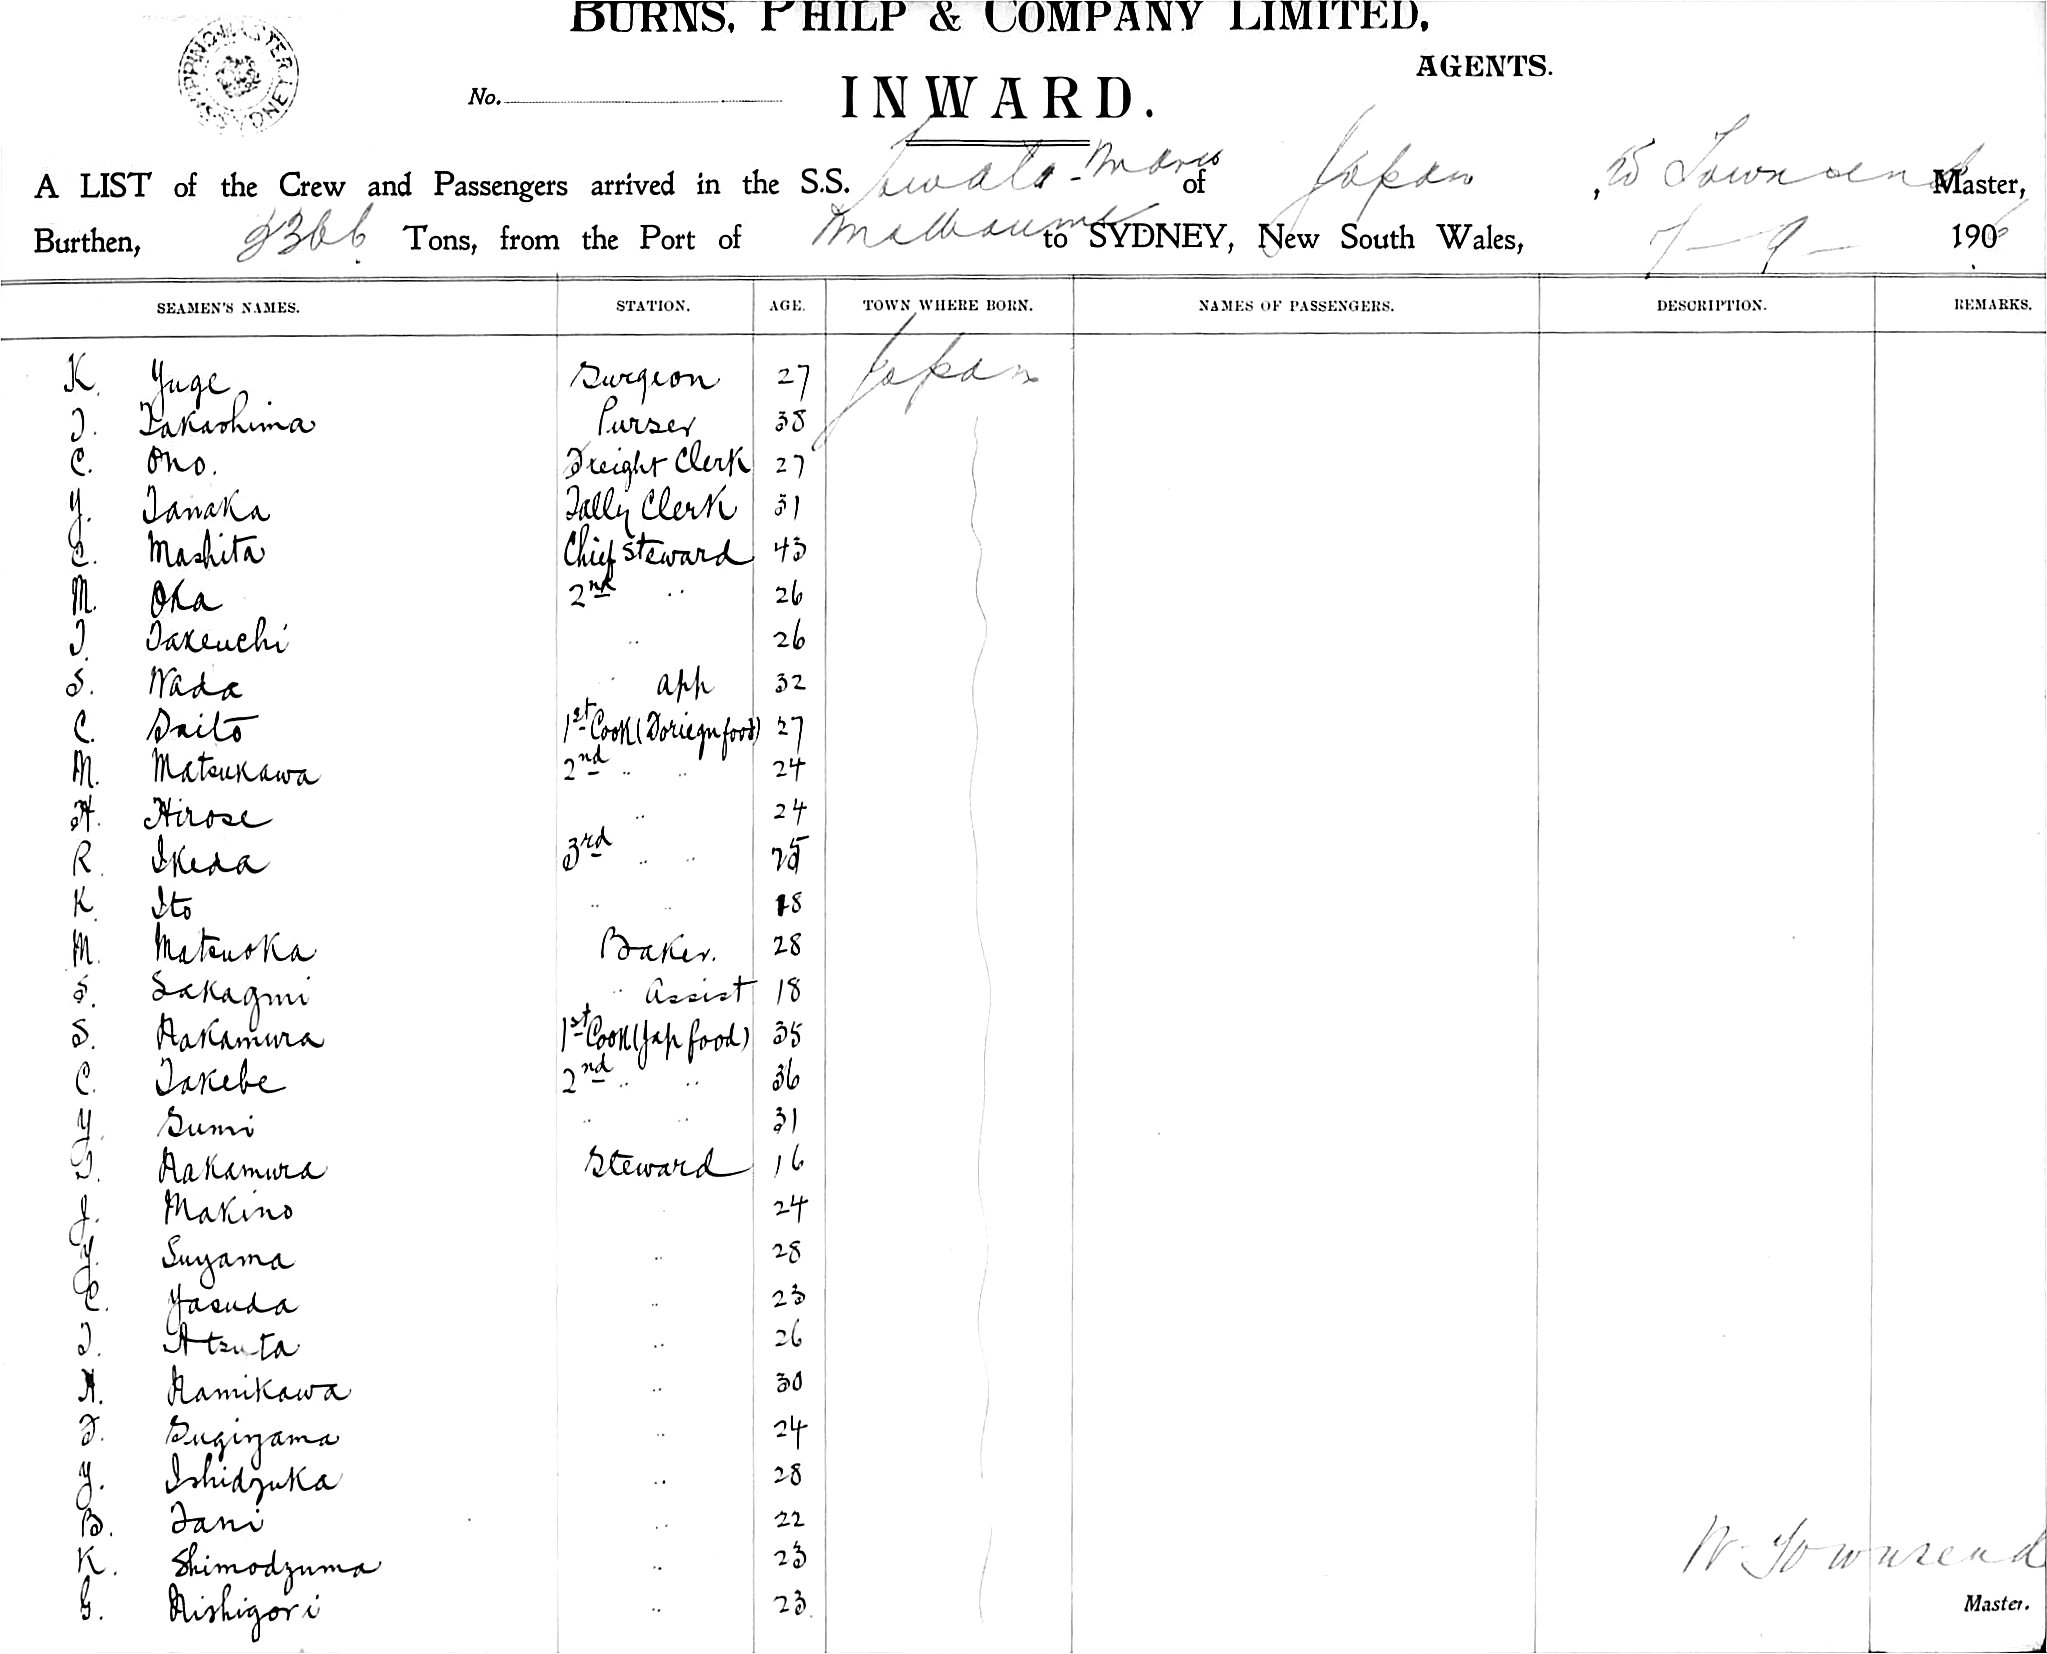 BURNS, PHILP & COMPANY LIMITED,
AGENTS.
SHIPPING MASTER SYDNEY
No. INWARD.
A LIST of the Crew and Passengers arrived in the S.S. Maru of Japan, W Townsend Master,
Burthen, 3366 Tons, from the Port of Melbourne to SYDNEY, New South Wales, 7-9- 1906
SEAMEN'S NAMES. STATION. AGE. TOWN WHERE BORN. NAMES OF PASSENGERS. DESCRIPTION. REMARKS.
K. Yuge Surgeon 27 Japan
T. Takashima Purser 38
C. Ono. Freight Clerk 27
Y. Tanaka Tally Clerk 31
C. Mashita Chief Steward 43
M. Oka 2nd " 26
T. Takeuchi " 26
S. Wada " app 32
C. Saito 1st Cook (Foriegn food) 27
M. Matsukawa 2nd " " 24
H. Hirose " 24
R. Ikeda 3rd " " 25
K. Ito " " 18
M. Matsuoka Baker. 28
S. Sakagmi " Assist 18
S. Nakamura 1st Cook (Jap food) 35
C. Takebe 2nd " " 36
Y. Sumi " " 31
T. Nakamura Steward 16
J. Makino 24
Y. Suyama " 28
C. Yasuda " 23
T. Atsuta " 26
N. Namikawa " 30
F. Sugiyama " 24
Y. Ishidzuka " 28
B. Tani " 22
K. Shimodzuma " 23
G. Nishigori " 23
W. Townsend
Master.